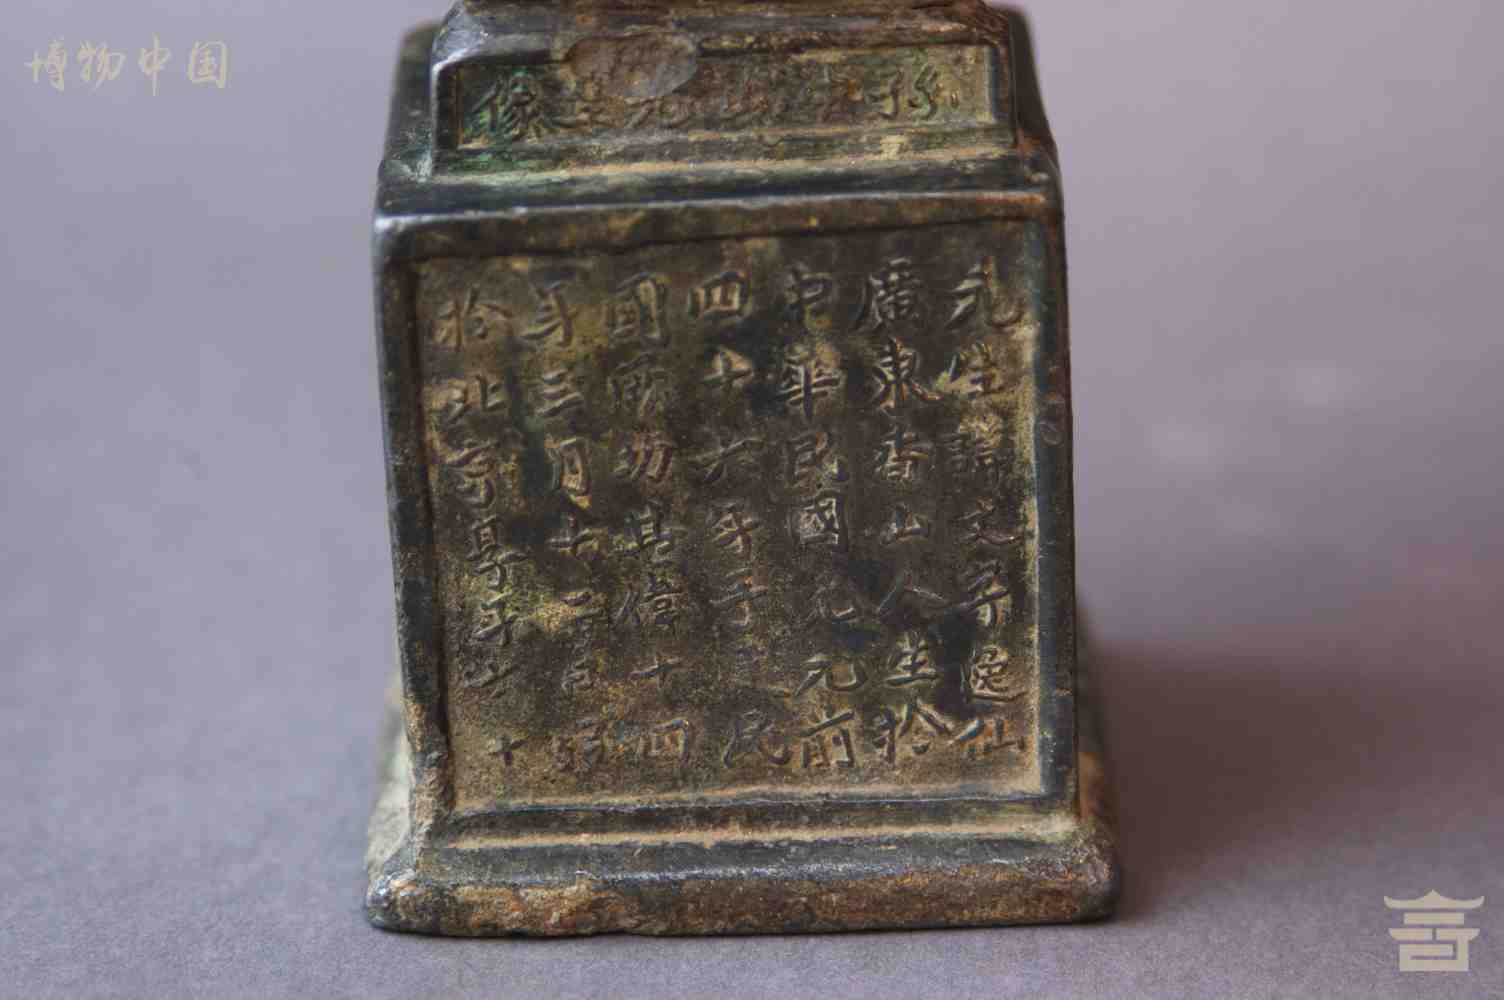 博物中国
孫中山先生像
先生諱文字逸仙
廣東香山人生於
中華民國元前
四十六年手民
國厥功甚偉十四
年三月十二日
於北京享年六十